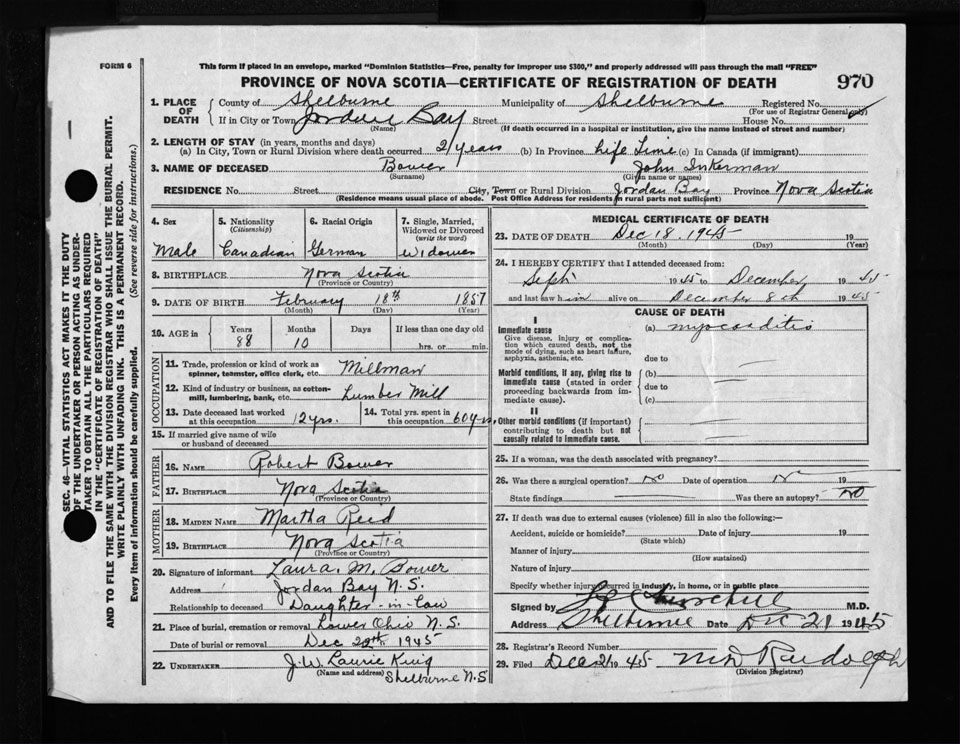 FORM 6
This form if placed in an envelope, marked "Dominion Statistics—Free, penalty for improper use $300," and properly addressed will pass through the mail "FREE"
PROVINCE OF NOVA SCOTIA—CERTIFICATE OF REGISTRATION OF DEATH 970
1. PLACE OF DEATH County of Shelburne Municipality of Shelburne Registered No.
(For use of Registrar General only)
If in City or Town Jordan Bay Street House No.
(Name) (If death occurred in a hospital or institution, give the name instead of street and number)
2. LENGTH OF STAY (in years, months and days)
(a) In City, Town or Rural Division where death occurred 21 years (b) In Province Life Time (c) In Canada (if immigrant)
3. NAME OF DECEASED Bower John Inkerman
(Surname) (Given name or names)
RESIDENCE No. Street City, Town or Rural Division Jordan Bay Province Nova Scotia
(Residence means usual place of abode. Post Office Address for residents in rural parts not sufficient)
4. Sex 5. Nationality (Citizenship) 6. Racial Origin 7. Single, Married, Widowed or Divorced (write the word)
Male Canadian German Widower
8. BIRTHPLACE Nova Scotia
(Province or Country)
9. DATE OF BIRTH February 18th 1857
(Month) (Day) (Year)
10. AGE in Years Months Days If less than one day old
88 10 hrs. or min.
OCCUPATION
11. Trade, profession or kind of work as spinner, teamster, office clerk, etc. Millman
12. Kind of industry or business, as cotton-mill, lumbering, bank, etc. Lumber Mill
13. Date deceased last worked at this occupation 12 yrs. 14. Total yrs. spent in this occupation 60 yrs.
15. If married give name of wife or husband of deceased
FATHER
16. NAME Robert Bower
17. BIRTHPLACE Nova Scotia
(Province or Country)
MOTHER
18. MAIDEN NAME Martha Reid
19. BIRTHPLACE Nova Scotia
(Province or Country)
20. Signature of informant Laura. M. Bower
Address Jordan Bay N.S.
Relationship to deceased Daughter-in-law
21. Place of burial, cremation or removal Lower Ohio N.S.
Date of burial or removal Dec 20th 1945
22. UNDERTAKER J. W. Laurie King
(Name and address) Shelburne N.S
MEDICAL CERTIFICATE OF DEATH
23. DATE OF DEATH Dec 18. 1945 19
(Month) (Day) (Year)
24. I HEREBY CERTIFY that I attended deceased from:
Sept 1945 to December 1945
and last saw him alive on December 8th 1945
CAUSE OF DEATH
I
Immediate cause (a) myocarditis
Give disease, injury or complication which caused death, not the mode of dying, such as heart failure, asphyxia, asthenia, etc.
due to
Morbid conditions, if any, giving rise to immediate cause (stated in order proceeding backwards from immediate cause).
(b)
due to
(c)
II
Other morbid conditions (if important) contributing to death but not causally related to immediate cause.
25. If a woman, was the death associated with pregnancy?
26. Was there a surgical operation? No Date of operation 19
State findings Was there an autopsy? No
27. If death was due to external causes (violence) fill in also the following:—
Accident, suicide or homicide? Date of injury 19
(State which)
Manner of injury
(How sustained)
Nature of injury
Specify whether injury occurred in industry, in home, or in public place
Signed by Churchill M.D.
Address Shelburne Date Dec 21 1945
28. Registrar's Record Number
29. Filed Dec 21 1945 Rudolph
(Division Registrar)
SEC. 46—VITAL STATISTICS ACT MAKES IT THE DUTY
OF THE UNDERTAKER OR PERSON ACTING AS UNDER-
TAKER TO OBTAIN ALL THE PARTICULARS REQUIRED
IN THE "CERTIFICATE OF REGISTRATION OF DEATH"
AND TO FILE THE SAME WITH THE DIVISION REGISTRAR WHO SHALL ISSUE THE BURIAL PERMIT.
WRITE PLAINLY WITH UNFADING INK. THIS IS A PERMANENT RECORD.
Every item of information should be carefully supplied. (See reverse side for instructions.)